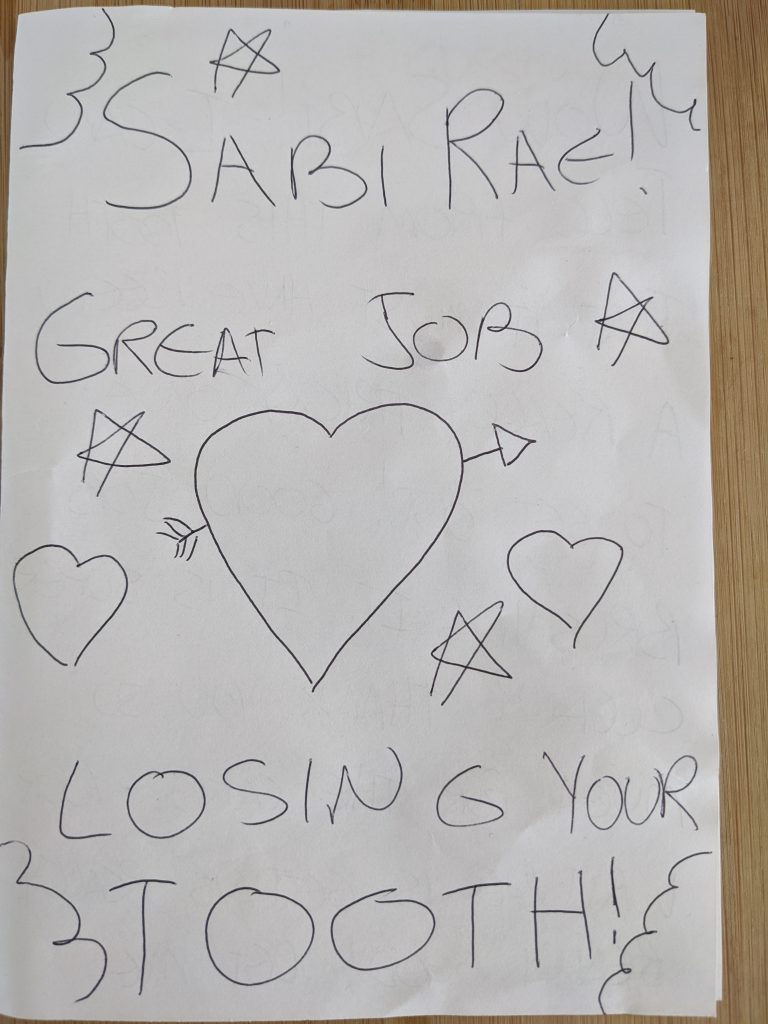 SABI RAE!
GREAT JOB
LOSING YOUR
TOOTH!